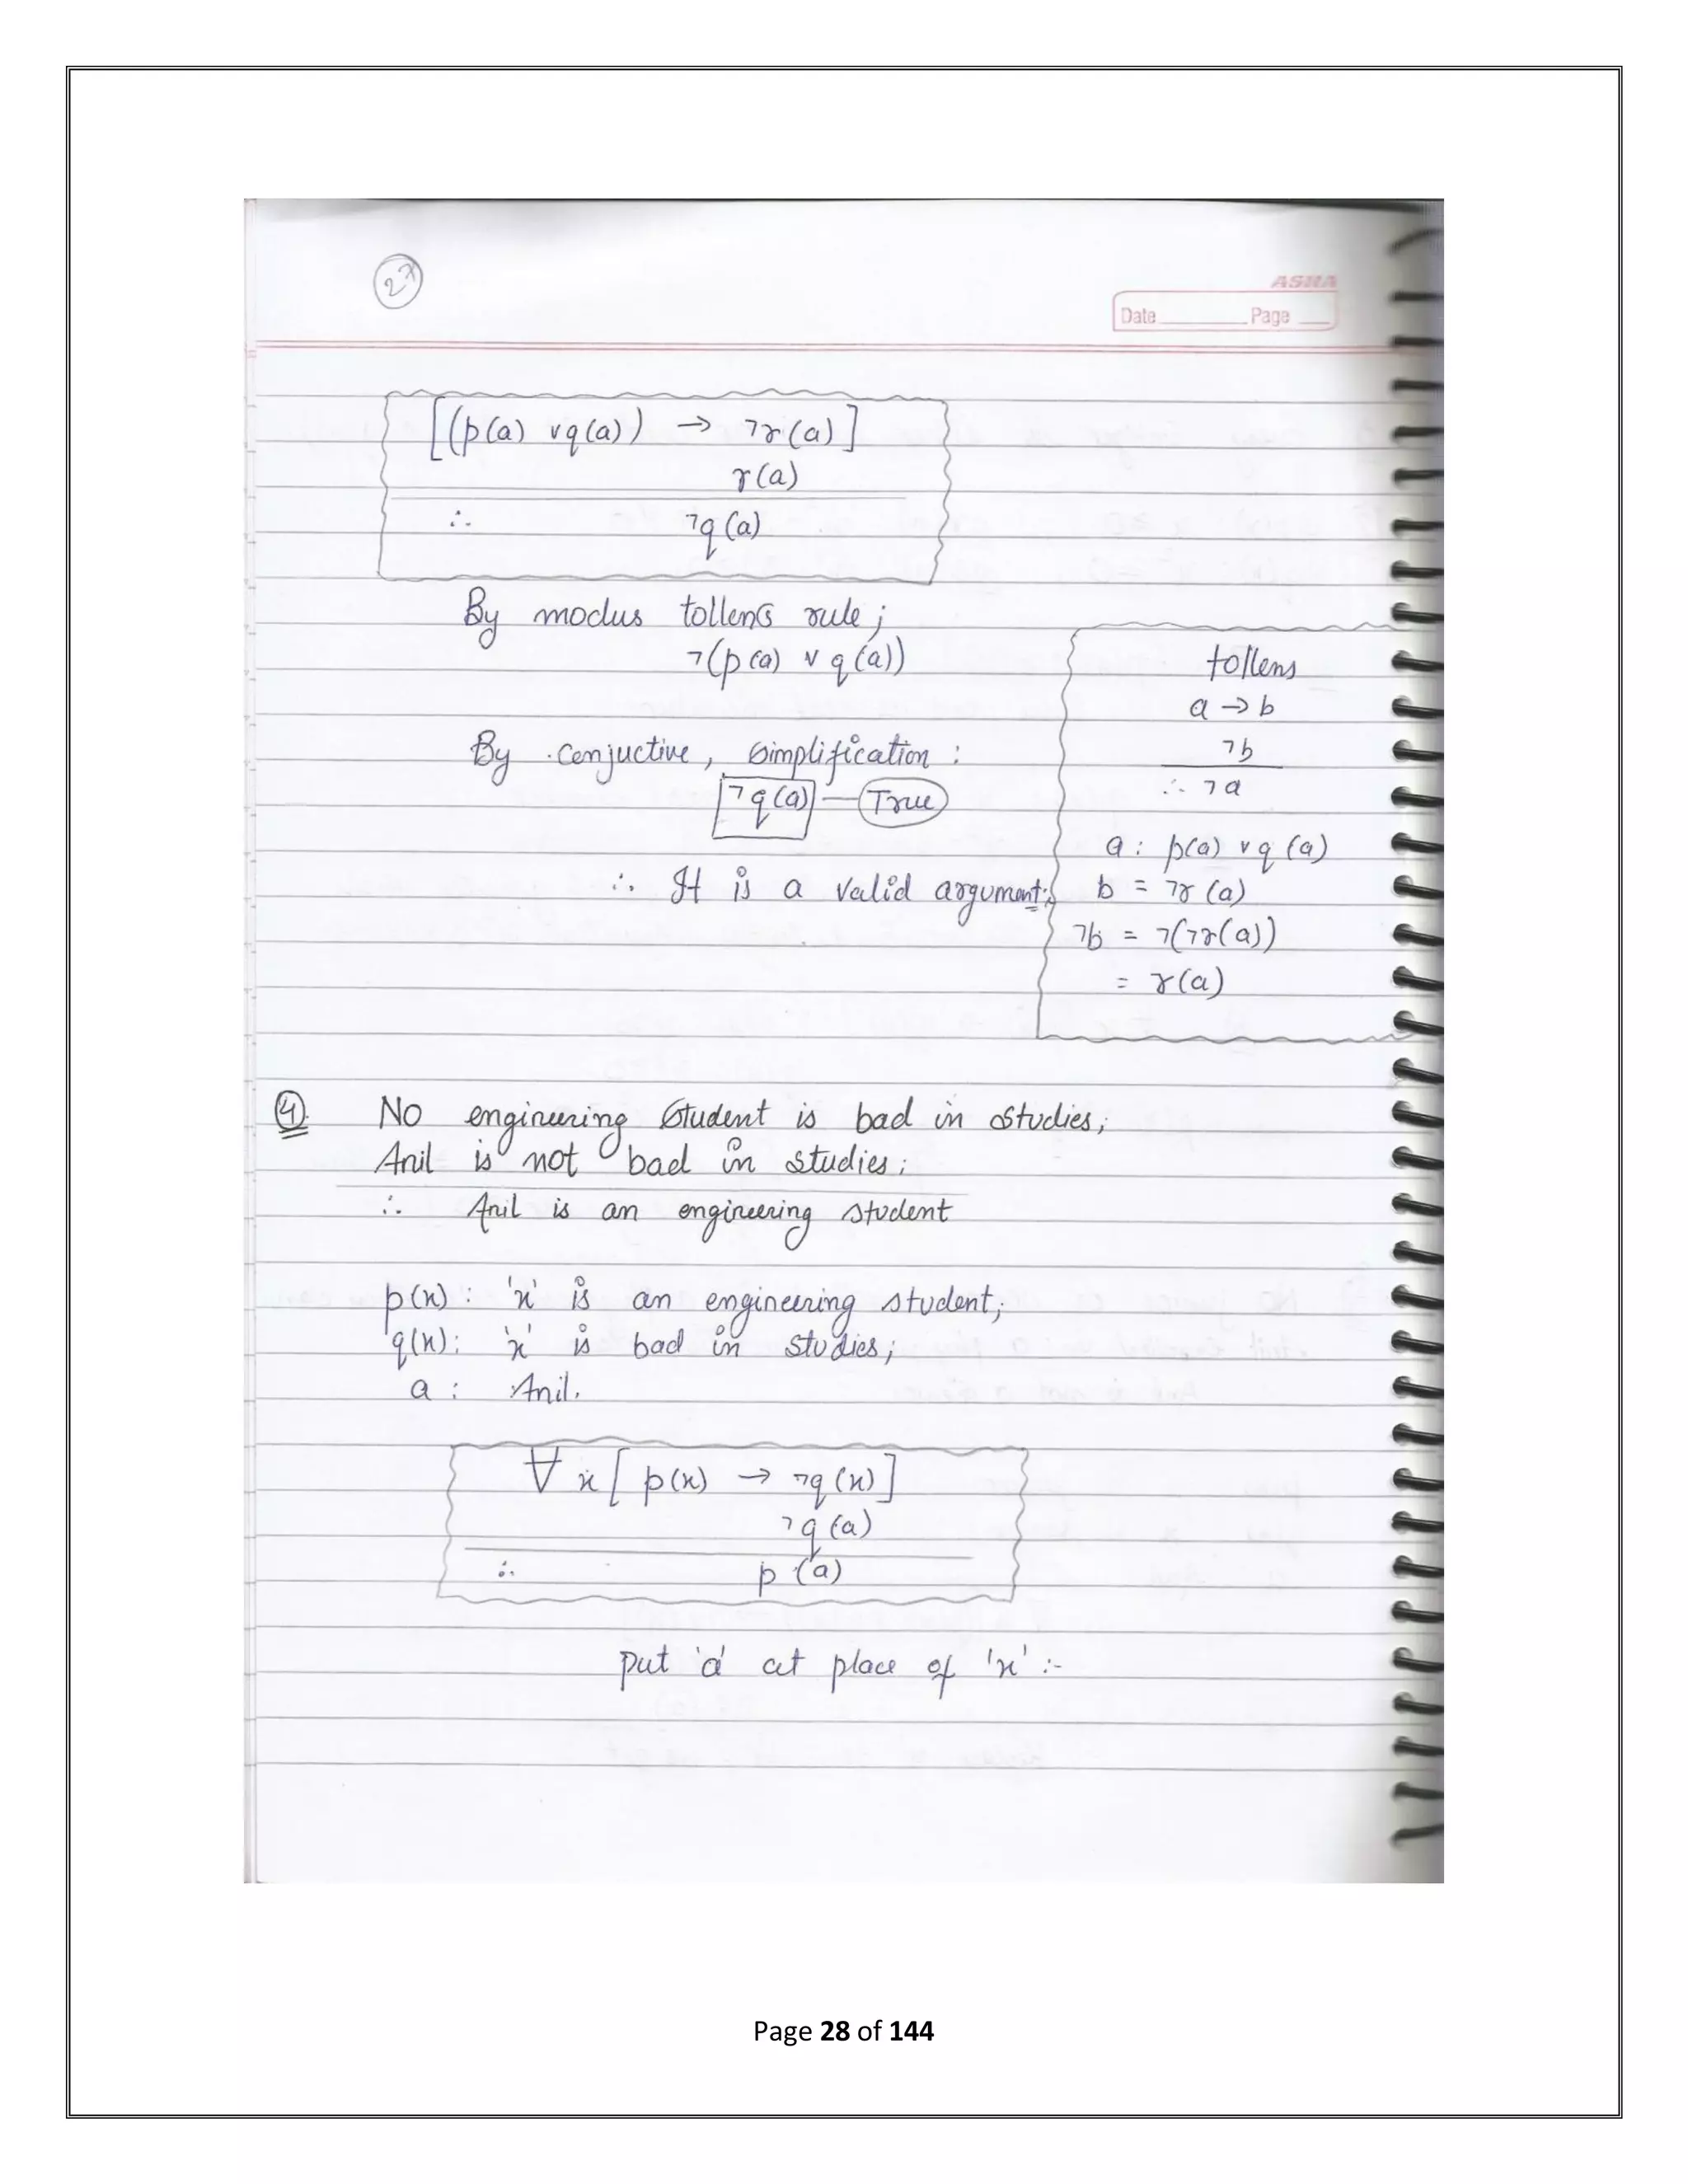 27
ASHA
Date Page
[(p(a) ∨q(a)) → ¬r(a)]
r(a)
∴ ¬q(a)
By modus tollens rule;
¬(p(a) ∨ q(a))
By conjuctive, simplification :
¬q(a) — True
∴ It is a valid argument;
tollens
a → b
¬b
∴ ¬a
a : p(a) ∨ q(a)
b = ¬r(a)
¬b = ¬(¬r(a))
= r(a)
4. No engineering student is bad in studies;
Anil is not bad in studies;
∴ Anil is an engineering student
p(x) : 'x' is an engineering student;
q(x) : 'x' is bad in studies;
a : Anil.
∀x[p(x) → ¬q(x)]
¬q(a)
∴ p(a)
put 'a' at place of 'x' :-
Page 28 of 144